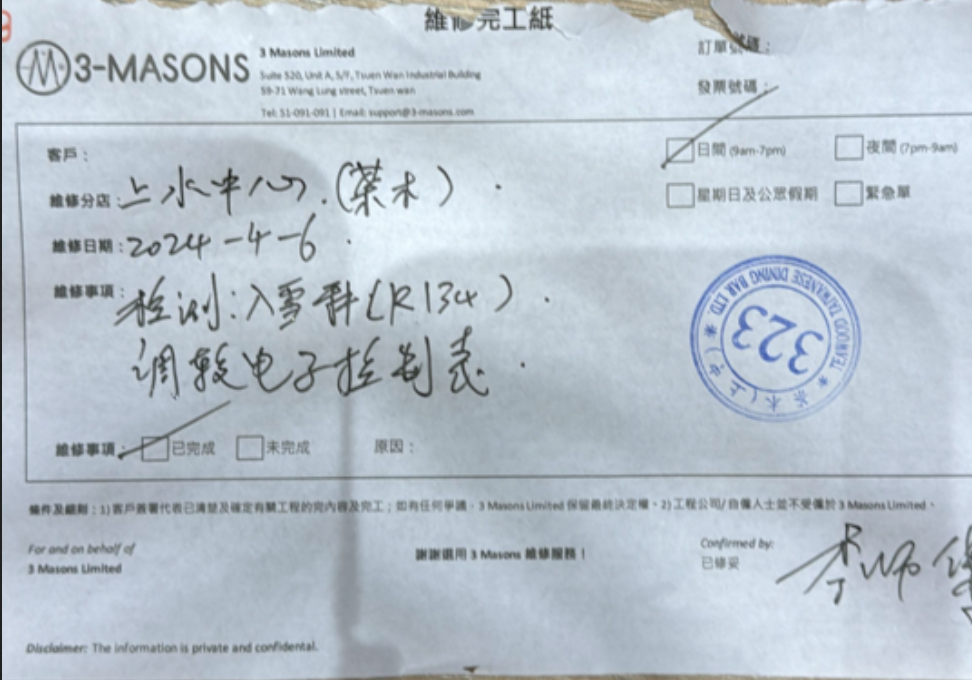 維修完工紙
3-MASONS
3 Masons Limited
Suite 520, Unit A, 5/F, Tsuen Wan Industrial Building
59-71 Wang Lung street, Tsuen wan
Tel: 51-091-091 | Email: support@3-masons.com
訂單號碼：
發票號碼：
客戶：
日間 (9am-7pm)
夜間 (7pm-9am)
維修分店：上水中心.(茶木)
星期日及公眾假期
緊急單
維修日期：2024-4-6
維修事項：检测:入雪种(R134)
调較电子控制表
323
TEAWOOD TAIWANESE DINING BAR LTD.
茶木(上水)
維修事項：
已完成
未完成
原因：
條件及細則：1) 客戶簽署代表已清楚及確定有關工程的完內容及完工；如有任何爭議，3 Masons Limited 保留最終決定權。2) 工程公司/自僱人士並不受僱於 3 Masons Limited。
For and on behalf of
3 Masons Limited
謝謝選用 3 Masons 維修服務！
Confirmed by:
已修妥
Disclaimer: The information is private and confidential.